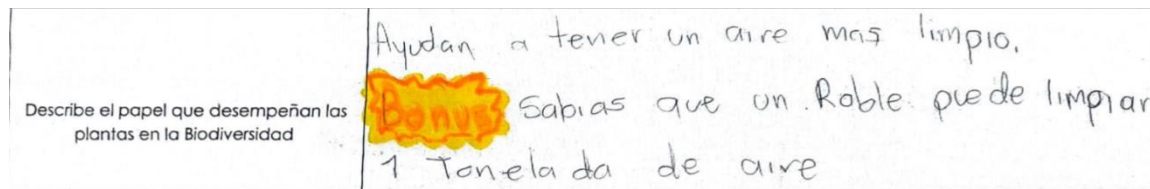 Describe el papel que desempeñan las
plantas en la Biodiversidad
Ayudan a tener un aire mas limpio.
Bonus Sabias que un Roble puede limpiar
1 Tonelada de aire